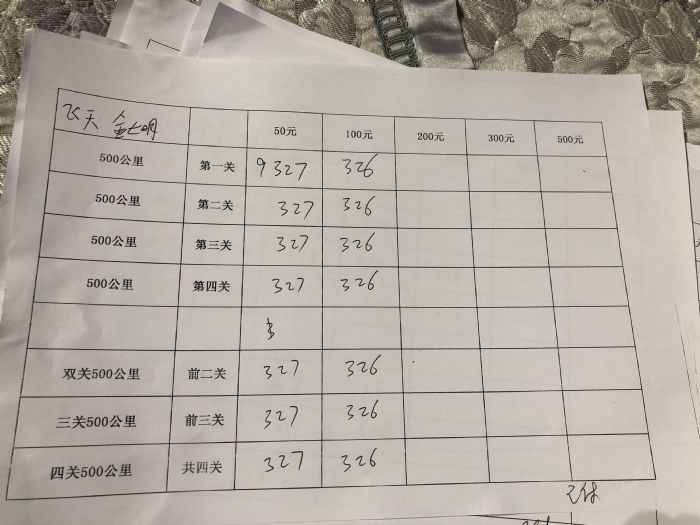 飞天 金七明 50元 100元 200元 300元 500元
500公里 第一关 9327 326
500公里 第二关 327 326
500公里 第三关 327 326
500公里 第四关 327 326
双关500公里 前二关 327 326
三关500公里 前三关 327 326
四关500公里 共四关 327 326
已付